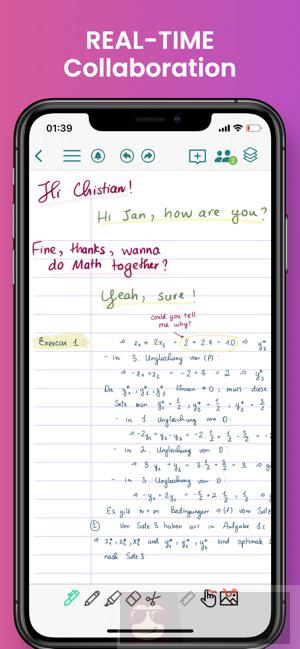 REAL-TIME
Collaboration
01:39
2
Hi Chistian!
Hi Jan, how are you?
Fine, thanks, wanna
do Math together?
Yeah, sure!
could you tell
me why?
Exercise 1:
⇒ x₁ + 2x₂ = 2 + 2·4 = 10 ⇒ y₂*
- in 3. Ungleichung von (P):
⇒ -x₁ + x₂ = -2 + 4 = 2 ⇒ y₃*
Da y₁*, y₂*, y₃* können ≠ 0, muss diese
Setz man y₁* = 1/2, y₂* = 1/2, y₃* = 3/2
- in 1. Ungleichung von D:
- in 2. Ungleichung von D:
- in 3. Ungleichung von D:
Es gilt n+m Bedingungen ⇒ (1) von Satz
② Von Satz 3 haben wir in Aufgabe 1c
sind optimale
nach Satz 3